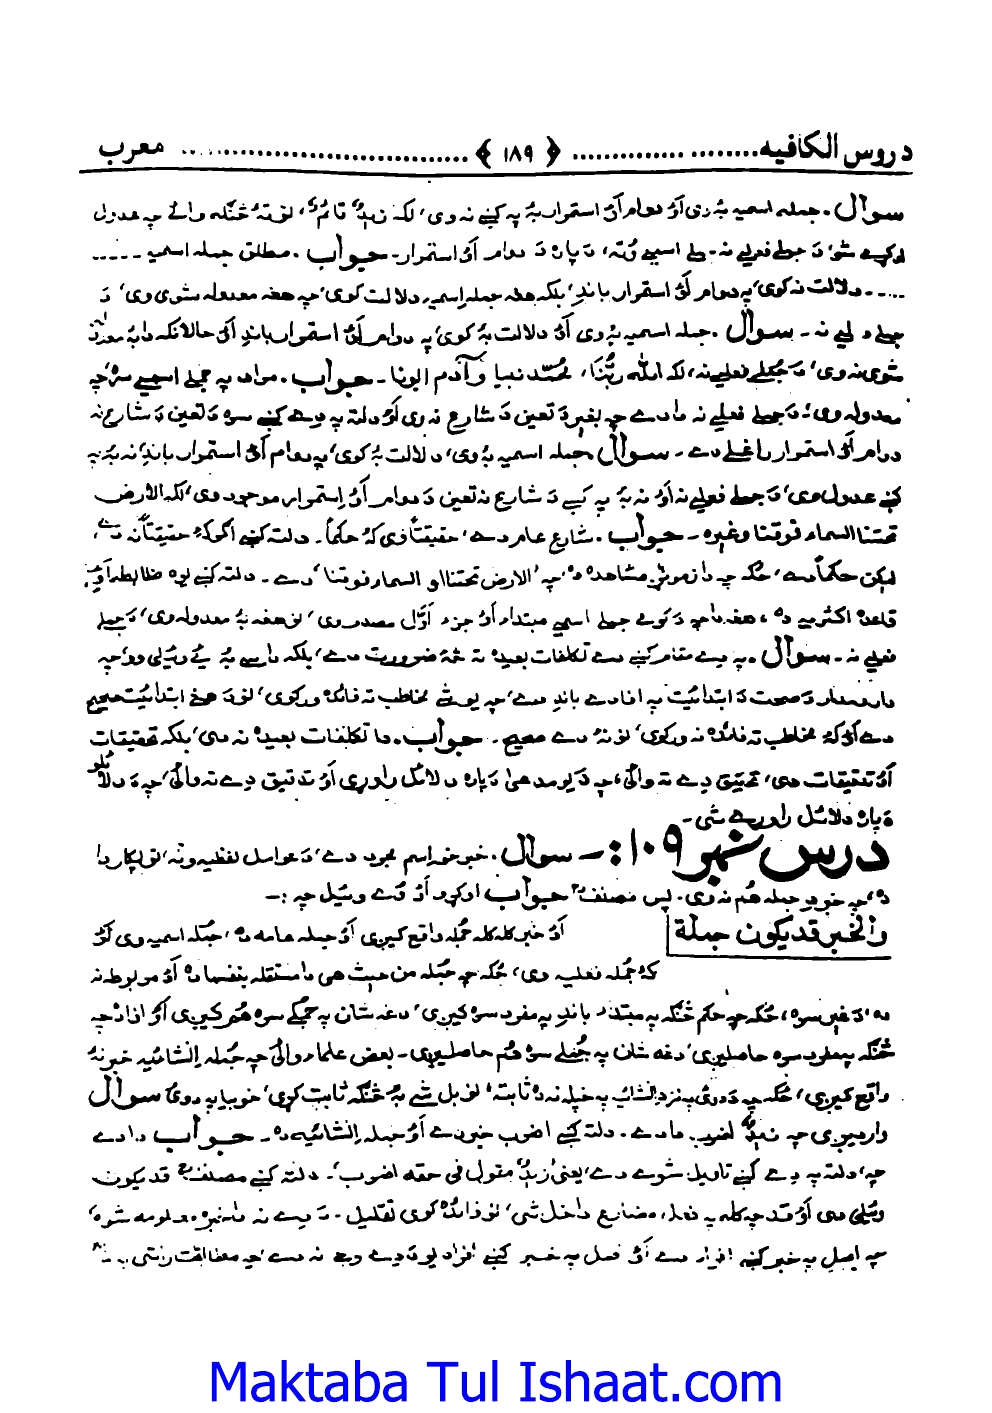 دروس الکافیه .................... ﴿ ۱۸۹ ﴾ .................... معرب
سوال. جمله اسمیه به وی اَو دوام اَو استمرار به په کښے نه وی، لکه زیدٌ قائمٌ، نو ته څنګه وائے چه عدول
اوکړے شو، دَ جملے فعلیے نه جملے اسمیے ته، دَ پاره دَ دوام اَو استمرار- جواب. مطلق جمله اسمیه -----
---- دلالت نه کوی، په دوام اَو استمرار باندِ، بلکه هغه جمله اِسمیه دلالت کوی، چه هغه معدوله شوی وی، دَ
جملے فعلیے نه - سوال. جمله اسمیه به وی اَو دلالت به کوی، په دوام اَو استمرار باندِ اَو حالانکه دا به معدوله
شوی نه وی، دَ جملے فعلیے نه، لکه الله ربُّنا، محمّد نبینا و آدم ابونا - جواب. مراد په جملے اسمیے سره چه
معدوله وی، دَ جملے فعلیے نه ما دے چه بغیر دَ تعین دَ شارع نه وی اَو دلته په دے کښے سره دَ تعین دَ شارع نه
دوام اَو استمرار راغلے دے - سوال. جمله اسمیه به وی، دلالت به کوی، په دوام اَو استمرار باندِ، نه به په
کښے عدول وی، دَ جملے فعلیے نه اَو نه به په کښے دَ شارع نه تعین دَ دوام اَو اِستمرار موجود وی، لکه الارض
تحتنا السماء فوقنا وغیره - جواب. شارع عام دے، حقیقتاً وی که حکماً. دلته کښے اګرکه حقیقتاً نه دے،
لیکن حکماً دے، ځکه چه دا زمونږ مشاهده ده، چه 'الارض تحتنا او السماء فوقنا' دے - دلته کښے یوه ضابطه اَو
قاعده اکثریه ده، هغه دا چه دَ کومے جملے اسمیے مبتداء اَو جزء اوّل مصدر وی، نو هغه به معدوله وی، دَ جملے
فعلیے نه - سوال. په دے مقام کښے دے تکلفات بعیده ته څه ضرورت دے، بلکه داسے به ئے ویلی وو، چه
دارومدار دَ صحت دَ ابتدائیت په افادے باندِ دے، چه یو شے مخاطب ته فائده ورکوی، نو دَ هغے ابتدائیت صحیح
دے اَو که مخاطب ته فائده نه ورکوی، نو نه دے صحیح - جواب. دا تکلفات بعیده نه دی، بلکه تحقیقات
اَو تدقیقات دی، تحقیق دِے ته وائی، چه دَ یو مدعیٰ دَ پاره دلائل راوړی اَو تدقیق دِے ته وائی، چه دَ دلائلو
دَ پاره دلائل راوړے شی -
درس نمبر ۱۰۹ :- سوال. خبر خو اسم مجرد دے، دَ عوامل لفظیه ونه، نو پکار دا
ده، چه خبر جمله هُم نه وی، پس مصنفؒ جواب اوکړو اَو وئے وئیل چه :-
والخبر قد یکون جملة
اَو خبر کله کله جمله واقع کیږی اَو جمله عامه ده، جمله اسمیه وی اَو
که جُمله فعلیه وی، ځکه چه جُمله من حیث هی دا مستقله بنفسها ده اَو مربوطه نه
ده، دَ غیر سره، ځکه چه حکم څنګه په مبتداء باندِ په مفرد سره کیږی، دغه شان په جملے سره هُم کیږی اَو افاده چه
څنګه په مفرد سره حاصلیږی، دغه شان په جُملے سره هُم حاصلیږی - بعض علماء وائی چه جُمله اِنشائیه خبر نه
واقع کیږی، ځکه چه دَ دوی په نزد اِنشائیه په خپله نه ده ثابته، نو بل شے به څنګه ثابت کړی، خو بیا په دوی سوال
واردیږی چه زیدٌ اضرب، ما دے - دلته کښے اضرب خبر دے اَو جمله اِنشائیه ده - جواب دا دے
چه، دلته په دِے کښے تاویل شوے دے، یعنی زیدٌ مقول فی حقه اضرب، - دلته کښے مصنفؒ قد یکون
ویلی دی اَو قد چه کله په فعل، مضارع داخل شی، نو فائده کوی تقلیل - دَ دے نه دا خبره معلومه شوه،
چه اصل په خبر کښے افراد دے اَو اصل په خبر کښے اِفراد یو دَ دے وجے نه دے، چه مطابقت راشی
Maktaba Tul Ishaat.com